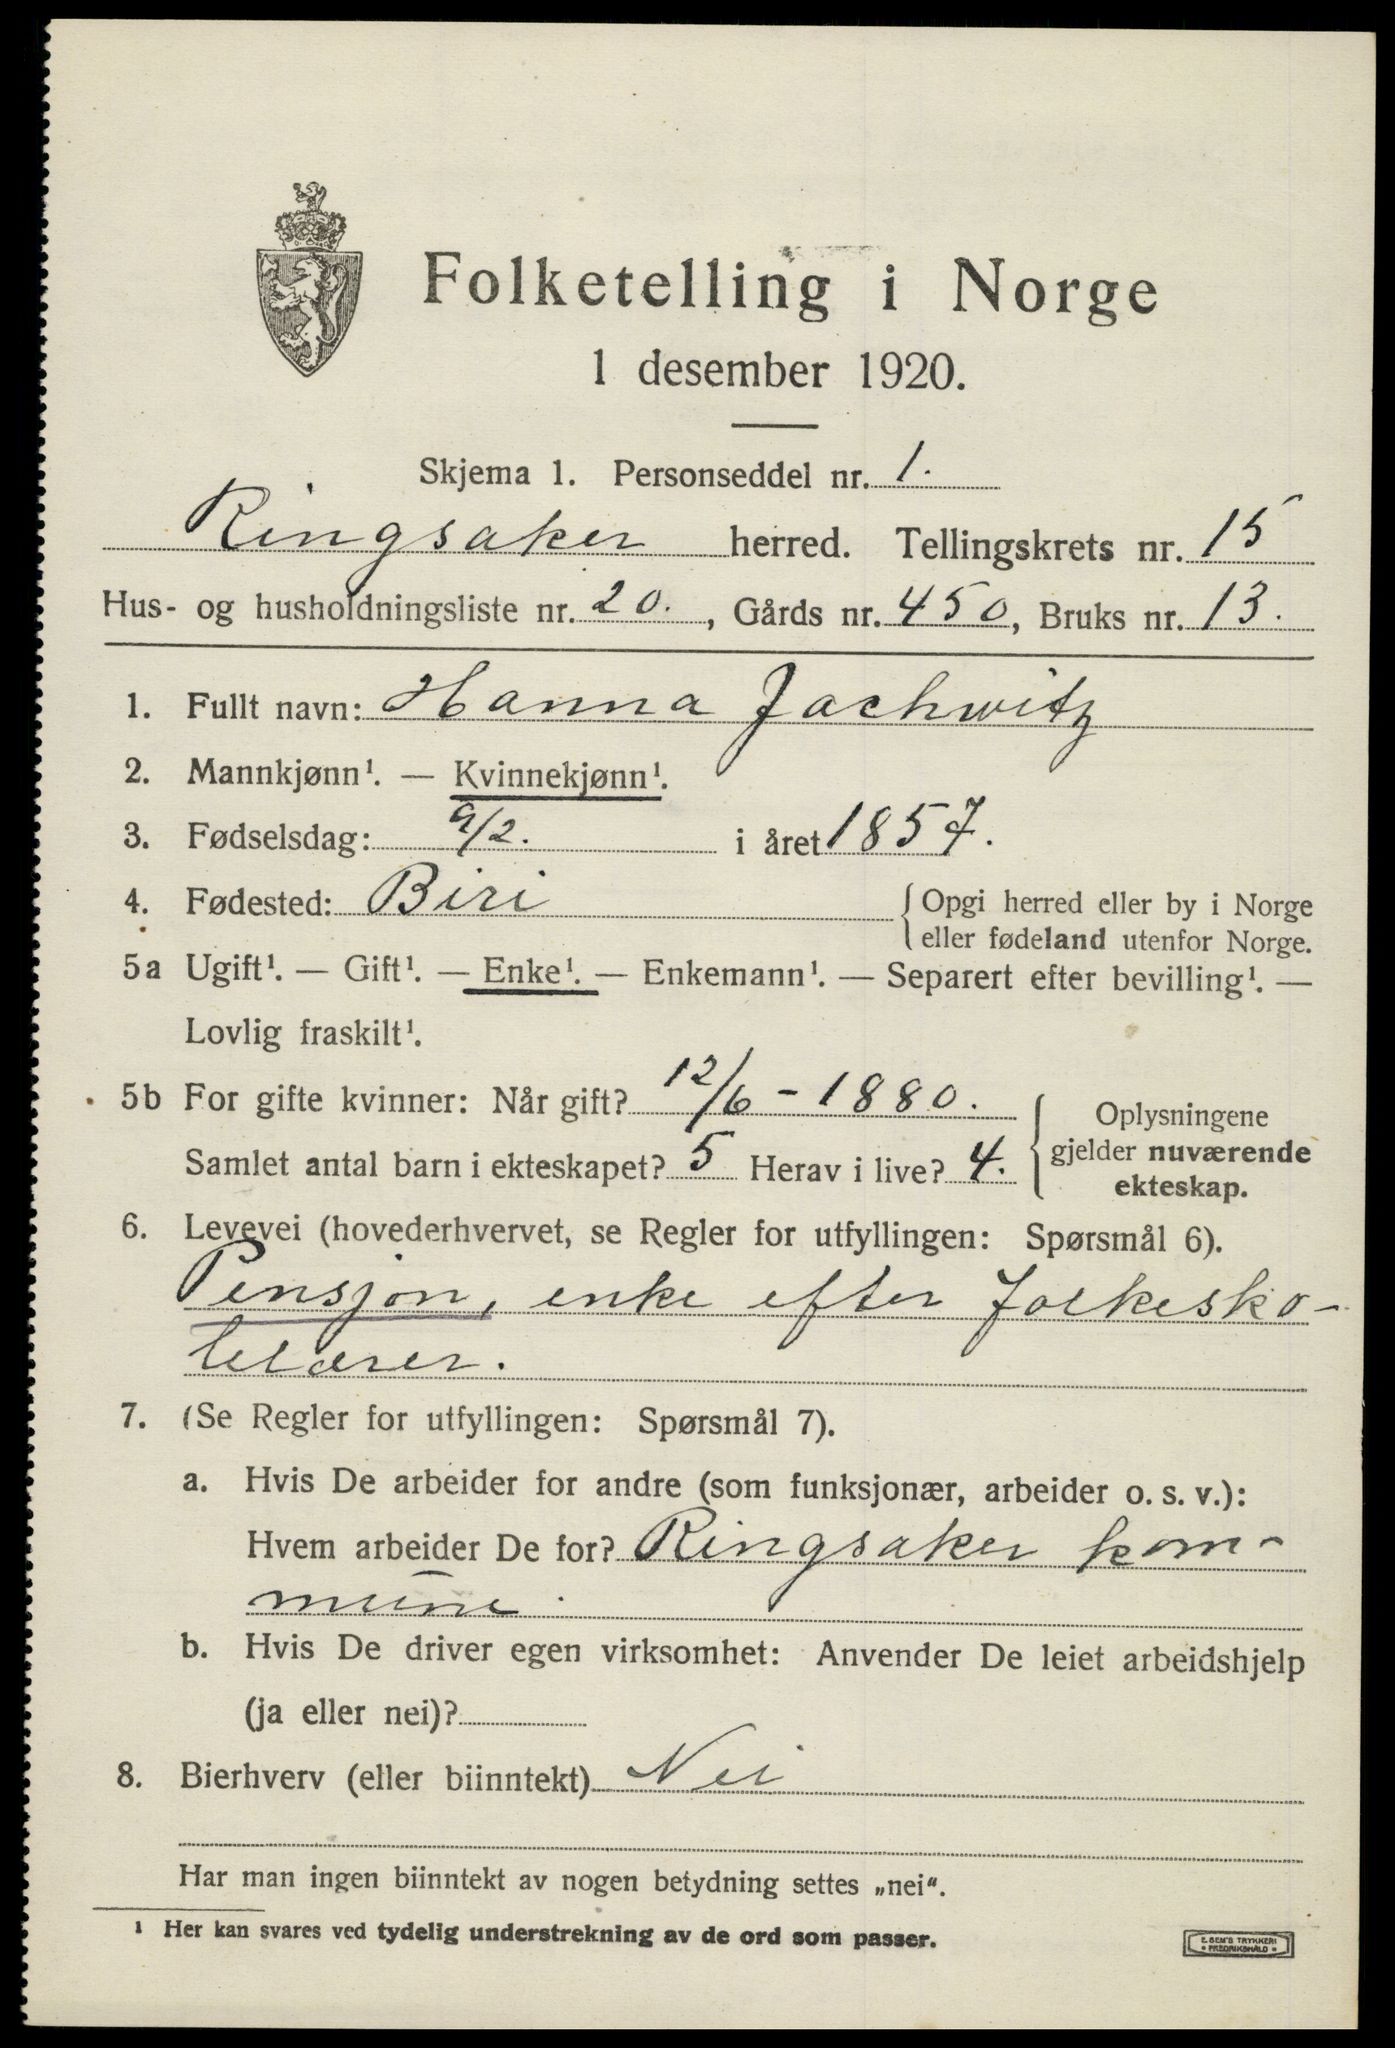 Folketelling i Norge
1 desember 1920.
Skjema 1. Personseddel nr. 1.
Ringsaker herred. Tellingskrets nr. 15
Hus- og husholdningsliste nr. 20., Gårds nr. 450, Bruks nr. 13.
1. Fullt navn: Hanna Jachwitz
2. Mannkjønn¹. — Kvinnekjønn¹.
3. Fødselsdag: 9/2. i året 1857.
4. Fødested: Biri
{ Opgi herred eller by i Norge
eller fødeland utenfor Norge.
5a Ugift¹. — Gift¹. — Enke¹. — Enkemann¹. — Separert efter bevilling¹. —
Lovlig fraskilt¹.
5b For gifte kvinner: Når gift? 12/6 - 1880.
Samlet antal barn i ekteskapet? 5 Herav i live? 4.
{ Oplysningene
gjelder nuværende
ekteskap.
6. Levevei (hovederhvervet, se Regler for utfyllingen: Spørsmål 6).
Pensjon, enke efter folkesko-
lelærer.
7. (Se Regler for utfyllingen: Spørsmål 7).
a. Hvis De arbeider for andre (som funksjonær, arbeider o. s. v.):
Hvem arbeider De for? Ringsaker kom-
mune.
b. Hvis De driver egen virksomhet: Anvender De leiet arbeidshjelp
(ja eller nei)?
8. Bierhverv (eller biinntekt) Nei
Har man ingen biinntekt av nogen betydning settes „nei“.
¹ Her kan svares ved tydelig understrekning av de ord som passer.
E. SEM'S TRYKKERI
• FREDRIKSHALD •